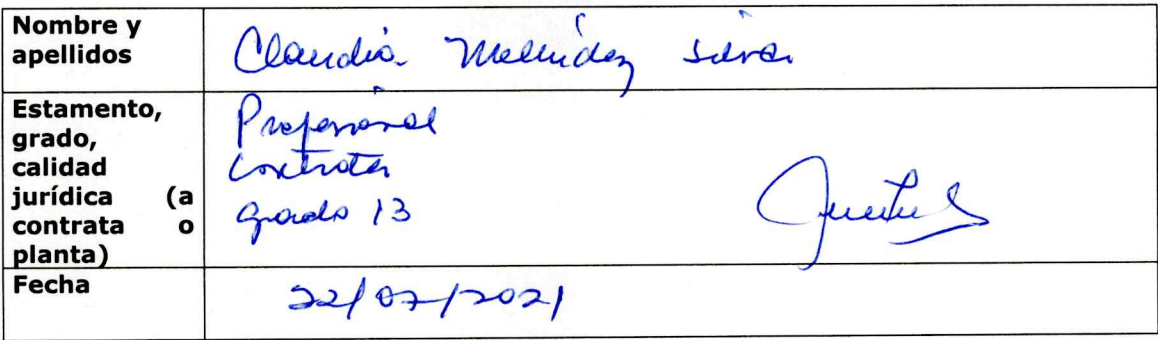 Nombre y
apellidos
Claudia Meléndez Silva
Estamento,
grado,
calidad
jurídica (a
contrata o
planta)
Profesional
Contrata
grado 13
Fecha
22/07/2021